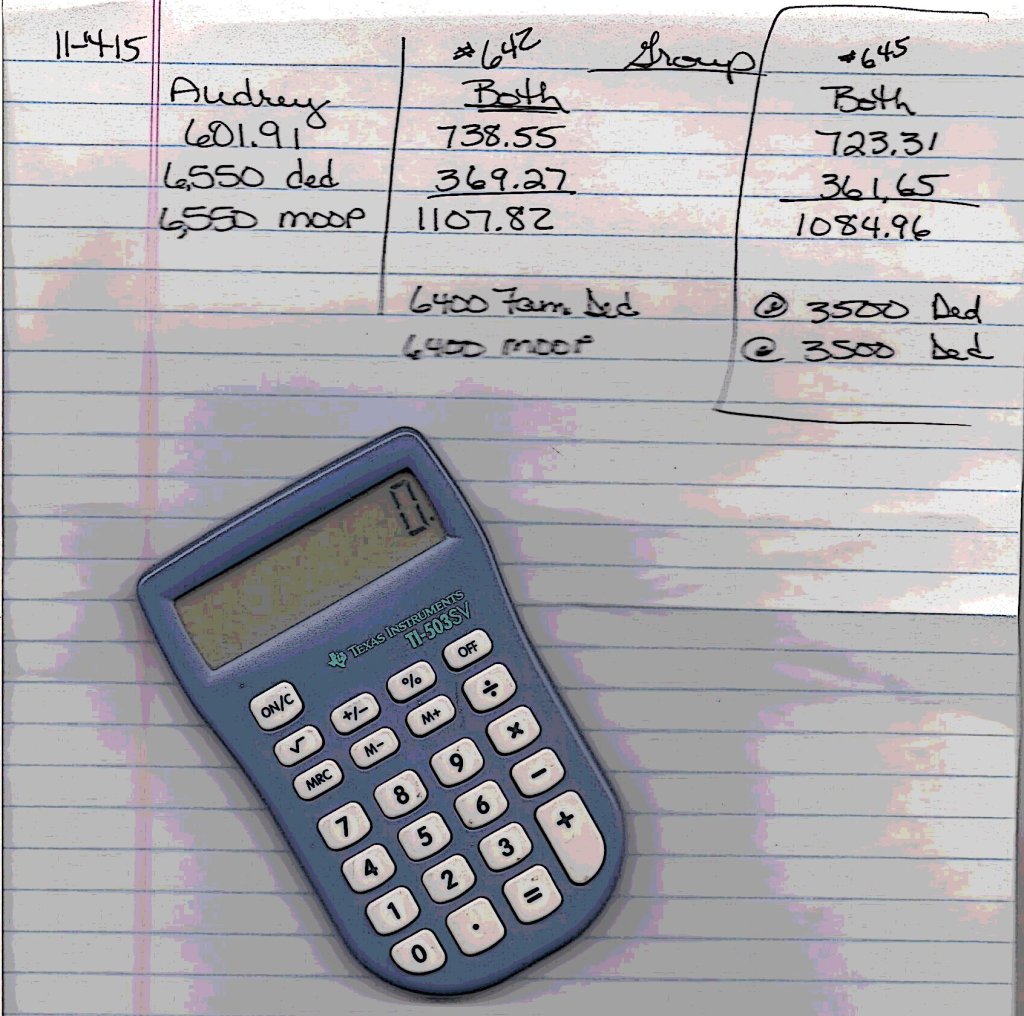 11-4-15
Audrey
601.91
6,550 ded
6,550 moop
#642
Both
738.55
369.27
1107.82
6400 Fam. Ded
6400 moop
Group
#645
Both
723.31
361.65
1084.96
@ 3500 Ded
@ 3500 Ded
0.
TEXAS INSTRUMENTS
TI-503SV
OFF
% ÷
+/- M+ ×
ON/C M- −
√ 9 +
MRC 8 6
7 5 3
4 2 =
1 .
0